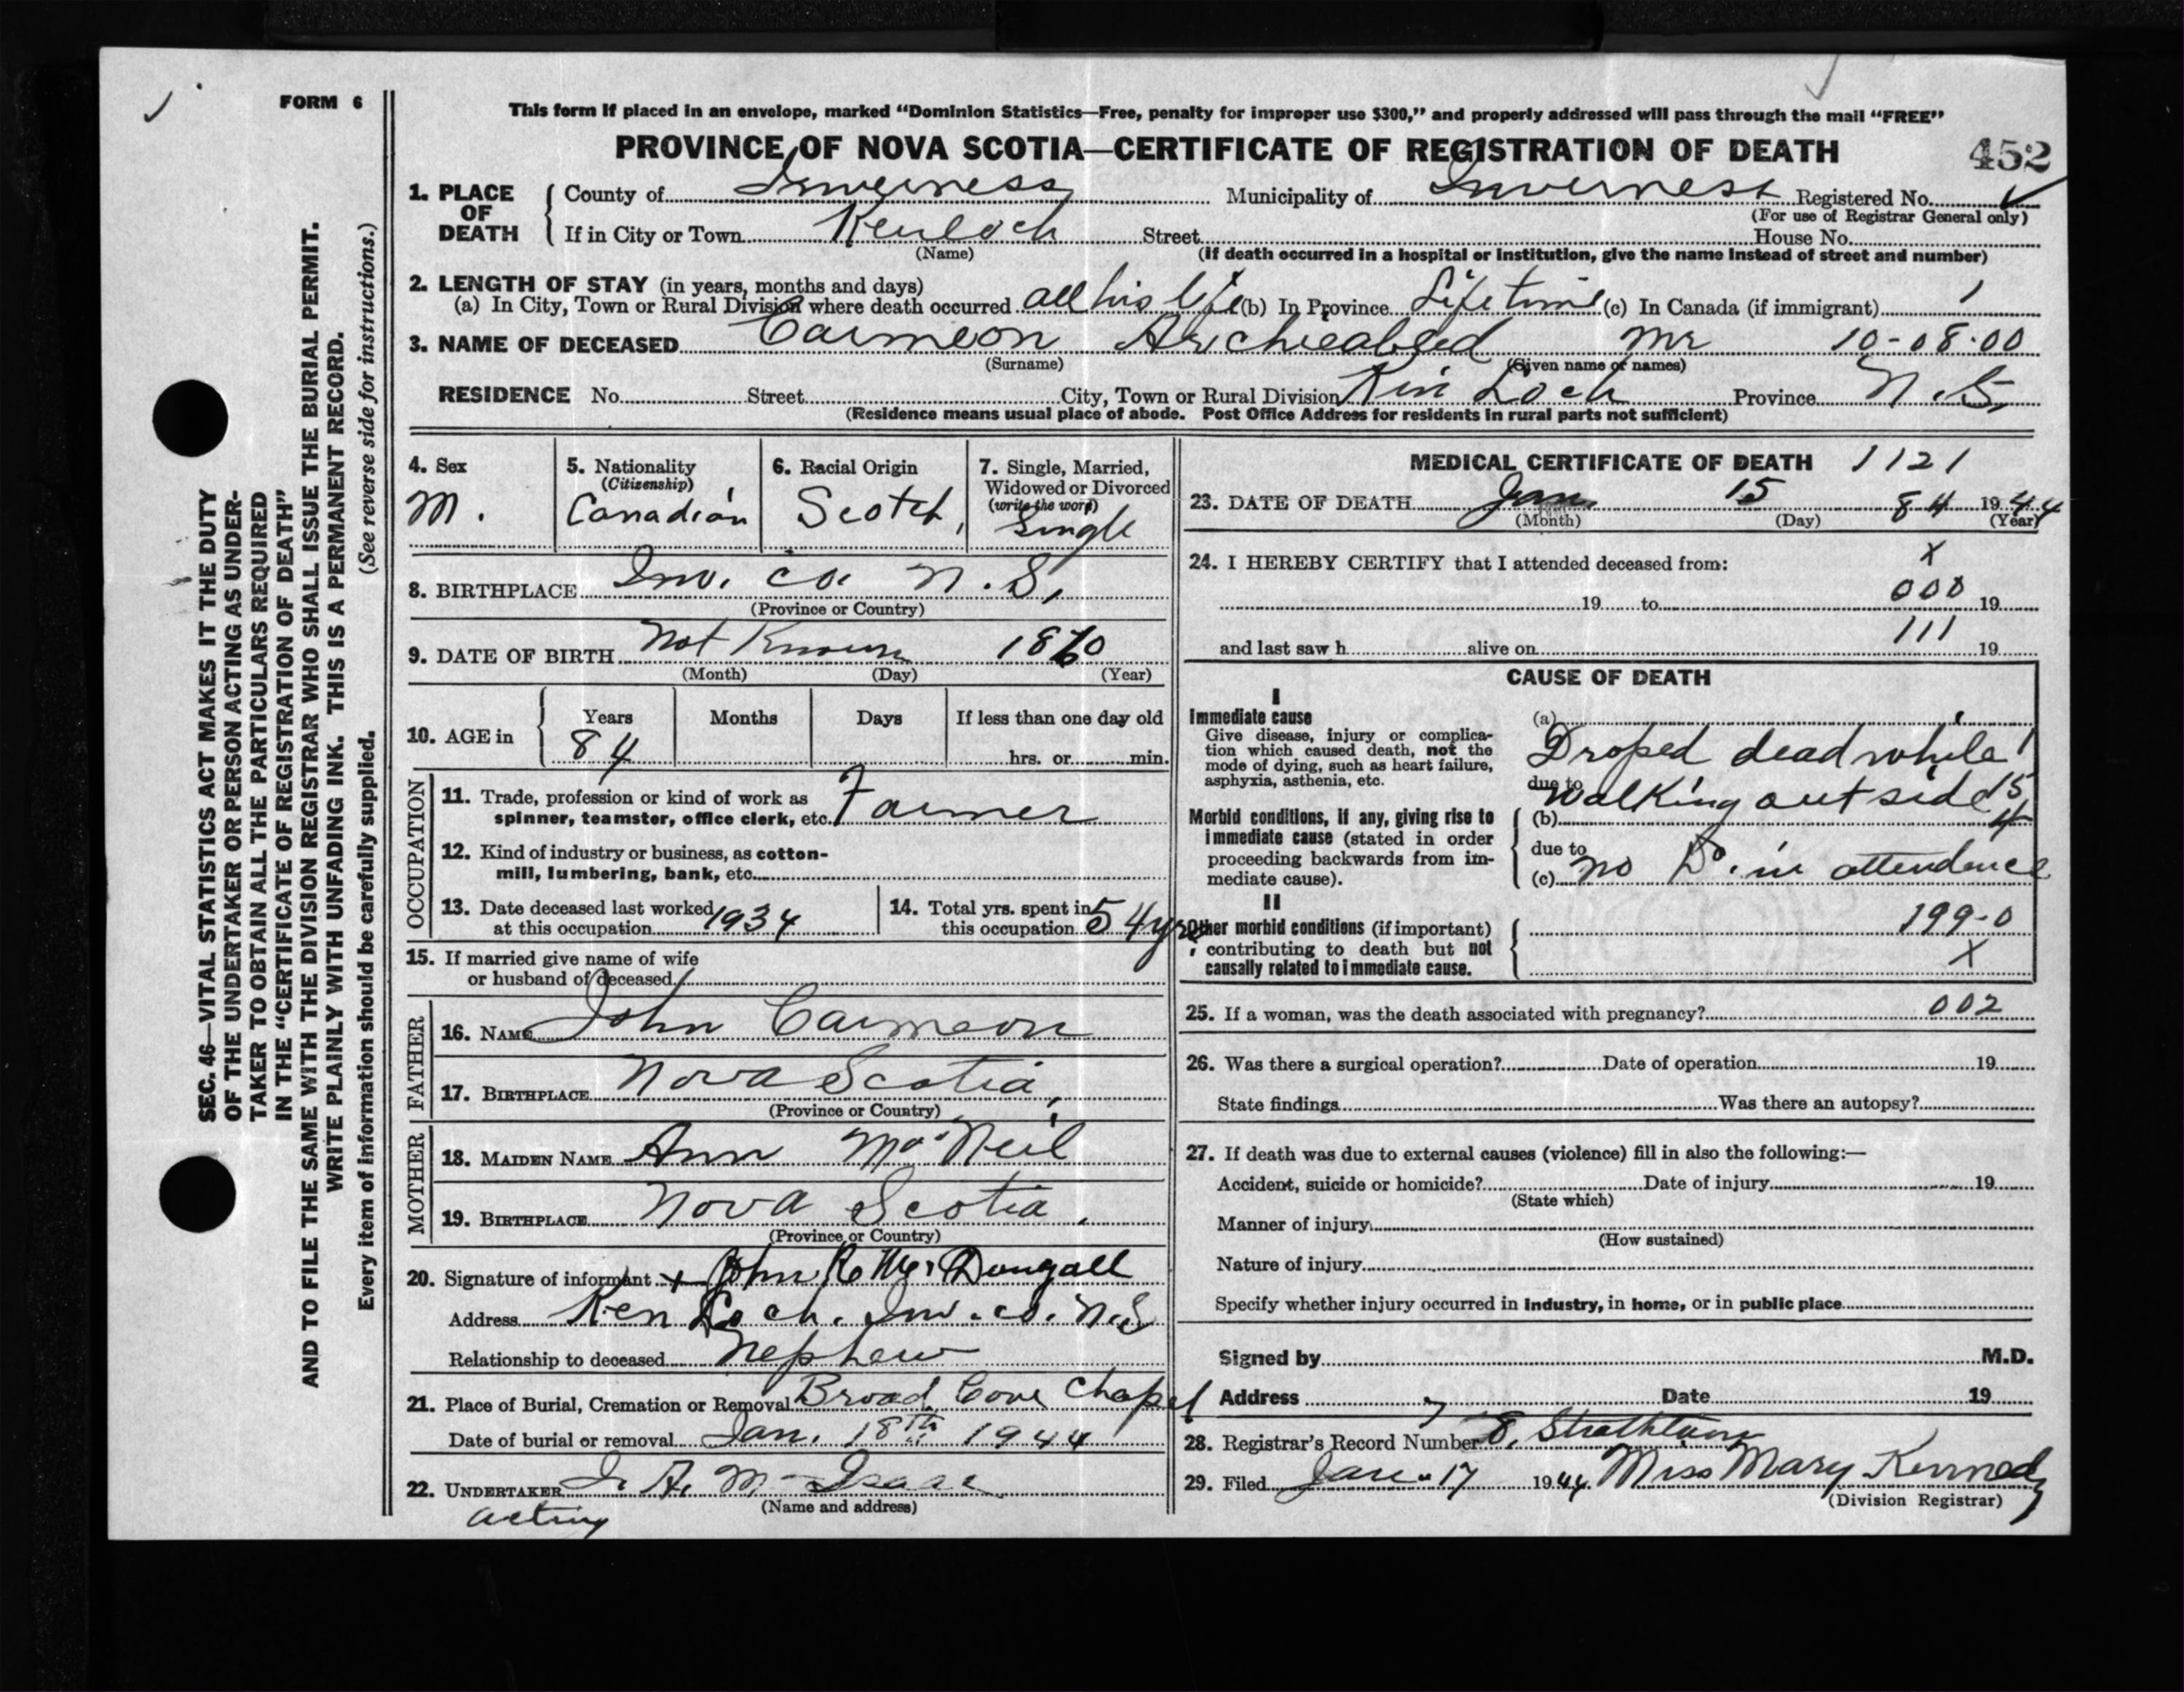 FORM 6
This form if placed in an envelope, marked “Dominion Statistics—Free, penalty for improper use $300,” and properly addressed will pass through the mail “FREE”
PROVINCE OF NOVA SCOTIA—CERTIFICATE OF REGISTRATION OF DEATH 452
1. PLACE OF DEATH County of Inverness Municipality of Inverness Registered No.
(For use of Registrar General only)
If in City or Town Kenloch Street House No.
(Name) (If death occurred in a hospital or institution, give the name instead of street and number)
2. LENGTH OF STAY (in years, months and days)
(a) In City, Town or Rural Division where death occurred all his life (b) In Province Life time (c) In Canada (if immigrant) 1
3. NAME OF DECEASED Carmeon Archieabled Mr 10-08-00
(Surname) (Given name or names)
RESIDENCE No. Street City, Town or Rural Division Kin Loch Province N.S.
(Residence means usual place of abode. Post Office Address for residents in rural parts not sufficient)
4. Sex M.
5. Nationality (Citizenship) Canadian
6. Racial Origin Scotch
7. Single, Married, Widowed or Divorced (write the word) Single
8. BIRTHPLACE Inv. co. N.S.
(Province or Country)
9. DATE OF BIRTH Not Known 1860
(Month) (Day) (Year)
10. AGE in Years Months Days If less than one day old
84 hrs. or min.
OCCUPATION
11. Trade, profession or kind of work as
spinner, teamster, office clerk, etc. Farmer
12. Kind of industry or business, as cotton-
mill, lumbering, bank, etc.
13. Date deceased last worked
at this occupation 1934
14. Total yrs. spent in
this occupation 54 yrs
15. If married give name of wife
or husband of deceased
FATHER
16. NAME John Carmeon
17. BIRTHPLACE Nova Scotia,
(Province or Country)
MOTHER
18. MAIDEN NAME Ann McNeil
19. BIRTHPLACE Nova Scotia.
(Province or Country)
20. Signature of informant x John R Mc Dougall
Address Ken Loch. Inv. co. N.S
Relationship to deceased Nephew
21. Place of Burial, Cremation or Removal Broad Cove Chapel
Date of burial or removal Jan. 18th 1944
22. UNDERTAKER A. Mc Isaac
(Name and address)
acting
MEDICAL CERTIFICATE OF DEATH 1121
23. DATE OF DEATH Jan. 15 84 1944
(Month) (Day) (Year)
24. I HEREBY CERTIFY that I attended deceased from: x
19 to 000 19
and last saw h alive on 111 19
CAUSE OF DEATH
I
Immediate cause
Give disease, injury or complica-
tion which caused death, not the
mode of dying, such as heart failure,
asphyxia, asthenia, etc.
(a)
Droped dead while 1
due to
walking out side 15
Morbid conditions, if any, giving rise to
immediate cause (stated in order
proceeding backwards from im-
mediate cause).
(b) 4
due to
(c) no Dr. in attendence
II
Other morbid conditions (if important)
contributing to death but not
causally related to immediate cause.
199-0
X
25. If a woman, was the death associated with pregnancy? 002
26. Was there a surgical operation? Date of operation 19
State findings Was there an autopsy?
27. If death was due to external causes (violence) fill in also the following:—
Accident, suicide or homicide? Date of injury 19
(State which)
Manner of injury
(How sustained)
Nature of injury
Specify whether injury occurred in industry, in home, or in public place
Signed by M.D.
Address Date 19
28. Registrar's Record Number
29. Filed Jan - 17 1944 Miss Mary Kennedy
(Division Registrar)
SEC. 46—VITAL STATISTICS ACT MAKES IT THE DUTY
OF THE UNDERTAKER OR PERSON ACTING AS UNDER-
TAKER TO OBTAIN ALL THE PARTICULARS REQUIRED
IN THE “CERTIFICATE OF REGISTRATION OF DEATH”
AND TO FILE THE SAME WITH THE DIVISION REGISTRAR WHO SHALL ISSUE THE BURIAL PERMIT.
WRITE PLAINLY WITH UNFADING INK. THIS IS A PERMANENT RECORD.
Every item of information should be carefully supplied. (See reverse side for instructions.)